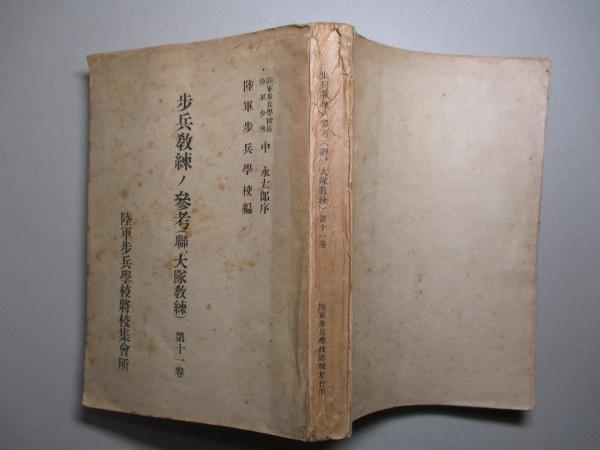 陸軍步兵學校長
陸軍少將 中 永太郎序
陸軍步兵學校編
步兵教練ノ參考(聯、大隊教練)第十一卷
陸軍步兵學校將校集會所
步兵教練ノ參考(聯、大隊教練)第十一卷
陸軍步兵學校將校集會所